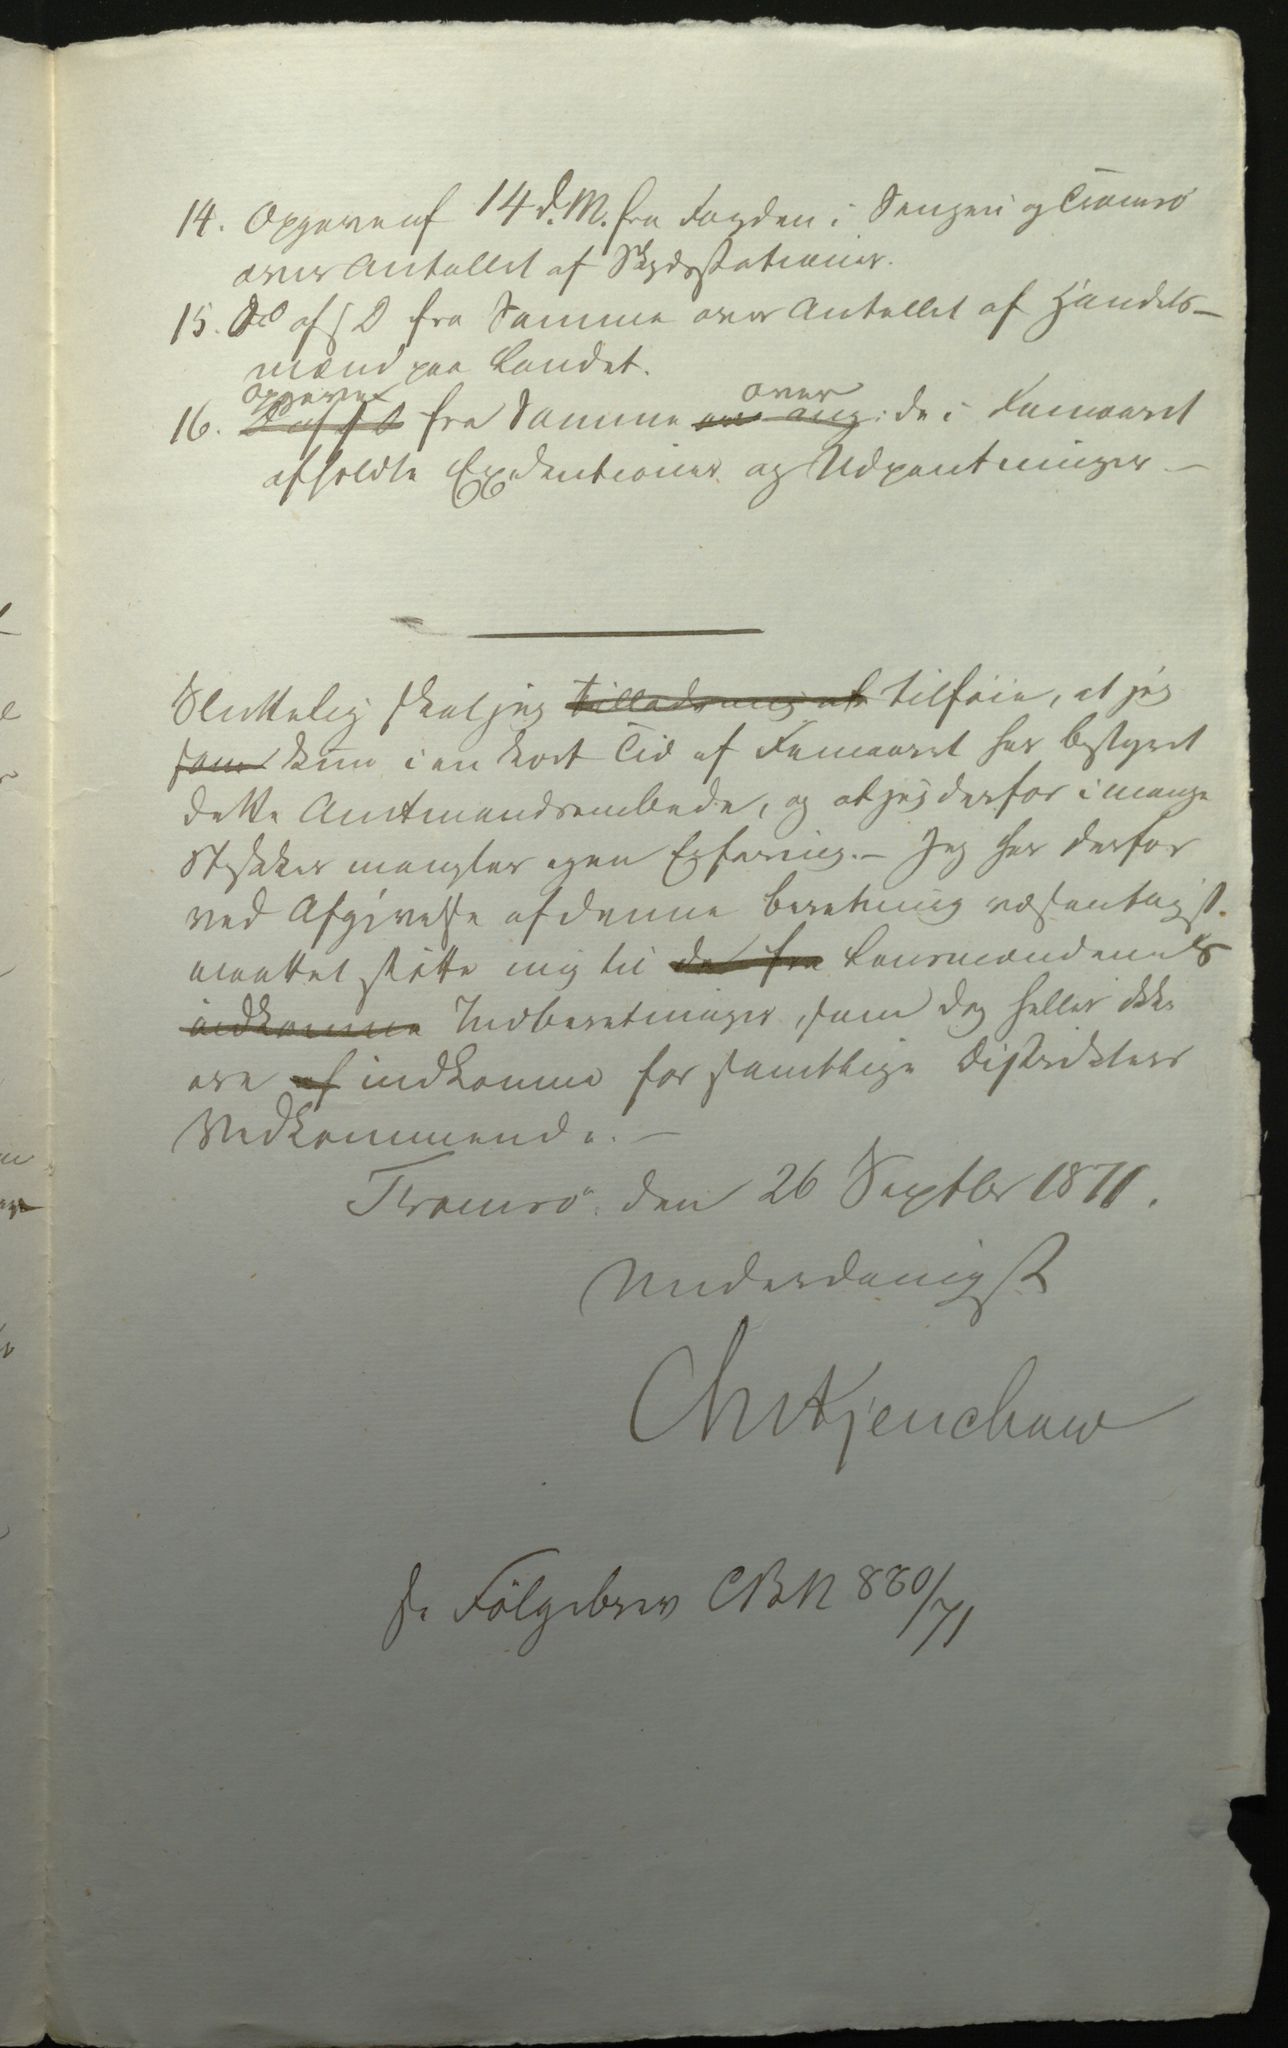 14. Opgave af 14 d. M. fra Fogden i Senjen og Tromsø
over Antallet af Skydsstationer.
15. Do af s D fra Samme over Antallet af Handels-
mænd paa Landet.
Opgave over
16. fra Samme ang: de i Femaaret
afholdte Exekutioner og Udpantninger. -
Sluttelig skal jeg tillade mig at tilføie, at jeg
som kun i en kort Tid af Femaaret har bestyret
dette Amtmandsembede, og at jeg derfor i mange
Stykker mangler egen Erfaring. - Jeg har derfor
ved Afgivelse af denne Beretning væsentligst
maattet støtte mig til de fra Lensmændenes
indkomne Indberetninger, som dog heller ikke
ere af indkomne for samtlige Distrikters
Vedkommende. -
Tromsø den 26 Septbr 1871.
Underdanigst
Kjerschow
se Følgebrev CBN 880/71